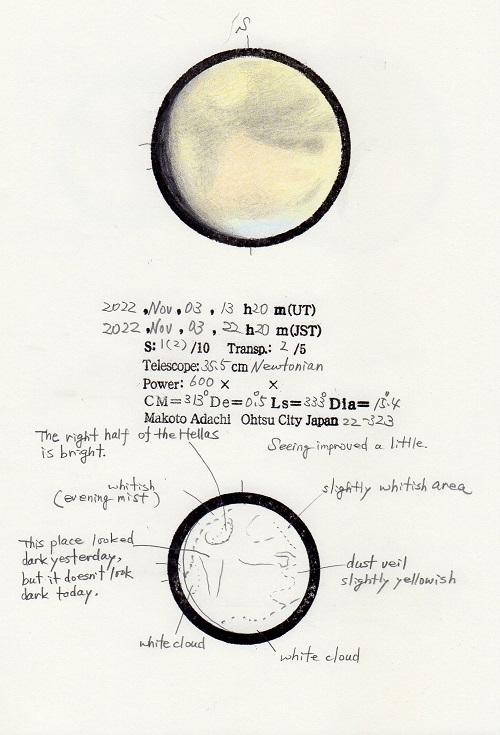 S
2022, Nov, 03, 13 h20 m(UT)
2022, Nov, 03, 22 h20 m(JST)
S: 1(2) /10 Transp.: 2 /5
Telescope: 35.5 cm Newtonian
Power: 600 × ×
CM=313° De=0.5° Ls=333° Dia=15.4
Makoto Adachi Ohtsu City Japan 22-323
The right half of the Hellas
is bright.
Seeing improved a little.
whitish
(evening mist)
slightly whitish area
This place looked
dark yesterday,
but it doesn't look
dark today.
dust veil
slightly yellowish
white cloud
white cloud